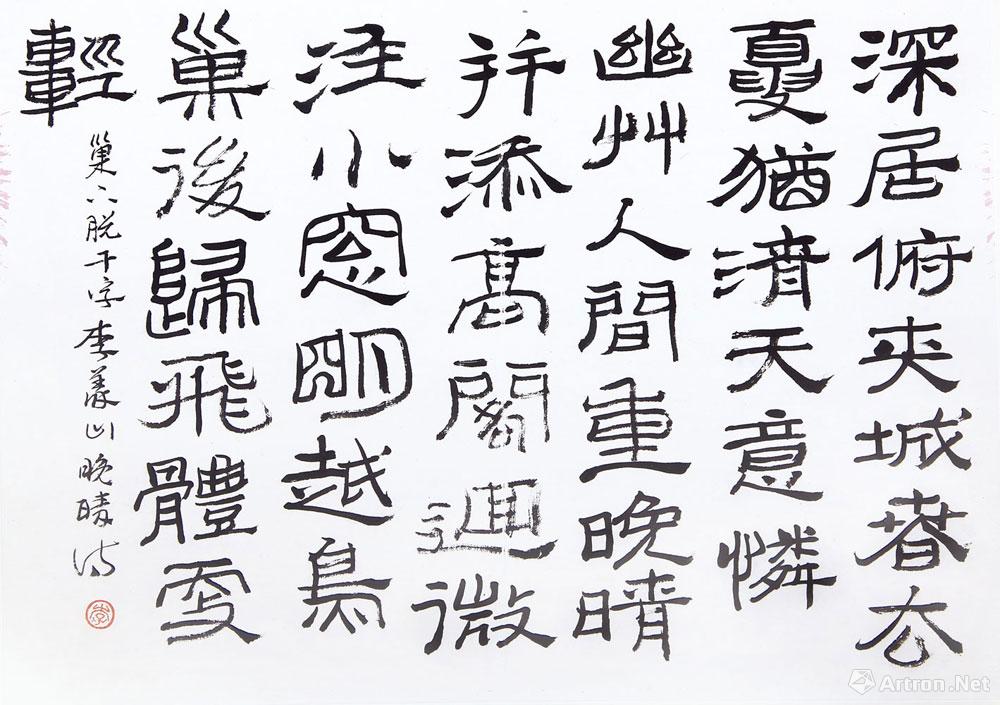 深居俯夾城春去
夏猶清天意憐
幽艸人間重晚晴
并添高閣迴微
注小窓明越鳥
巢後歸飛體更
輕
巢下脱干字李義山晚晴诗
Artron.Net